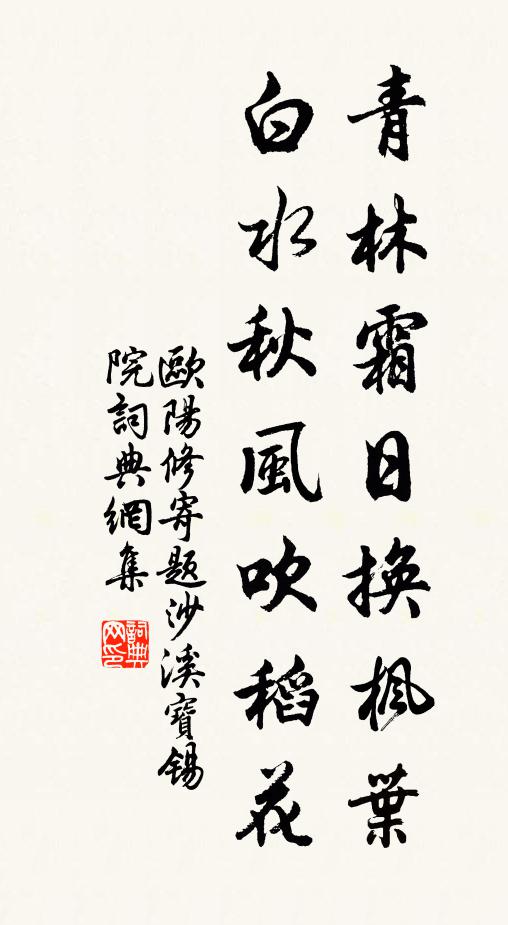 青林霜日換楓葉
白水秋風吹稻花
歐陽修寄題沙溪寶錫
院詞典網集
詞典
网印